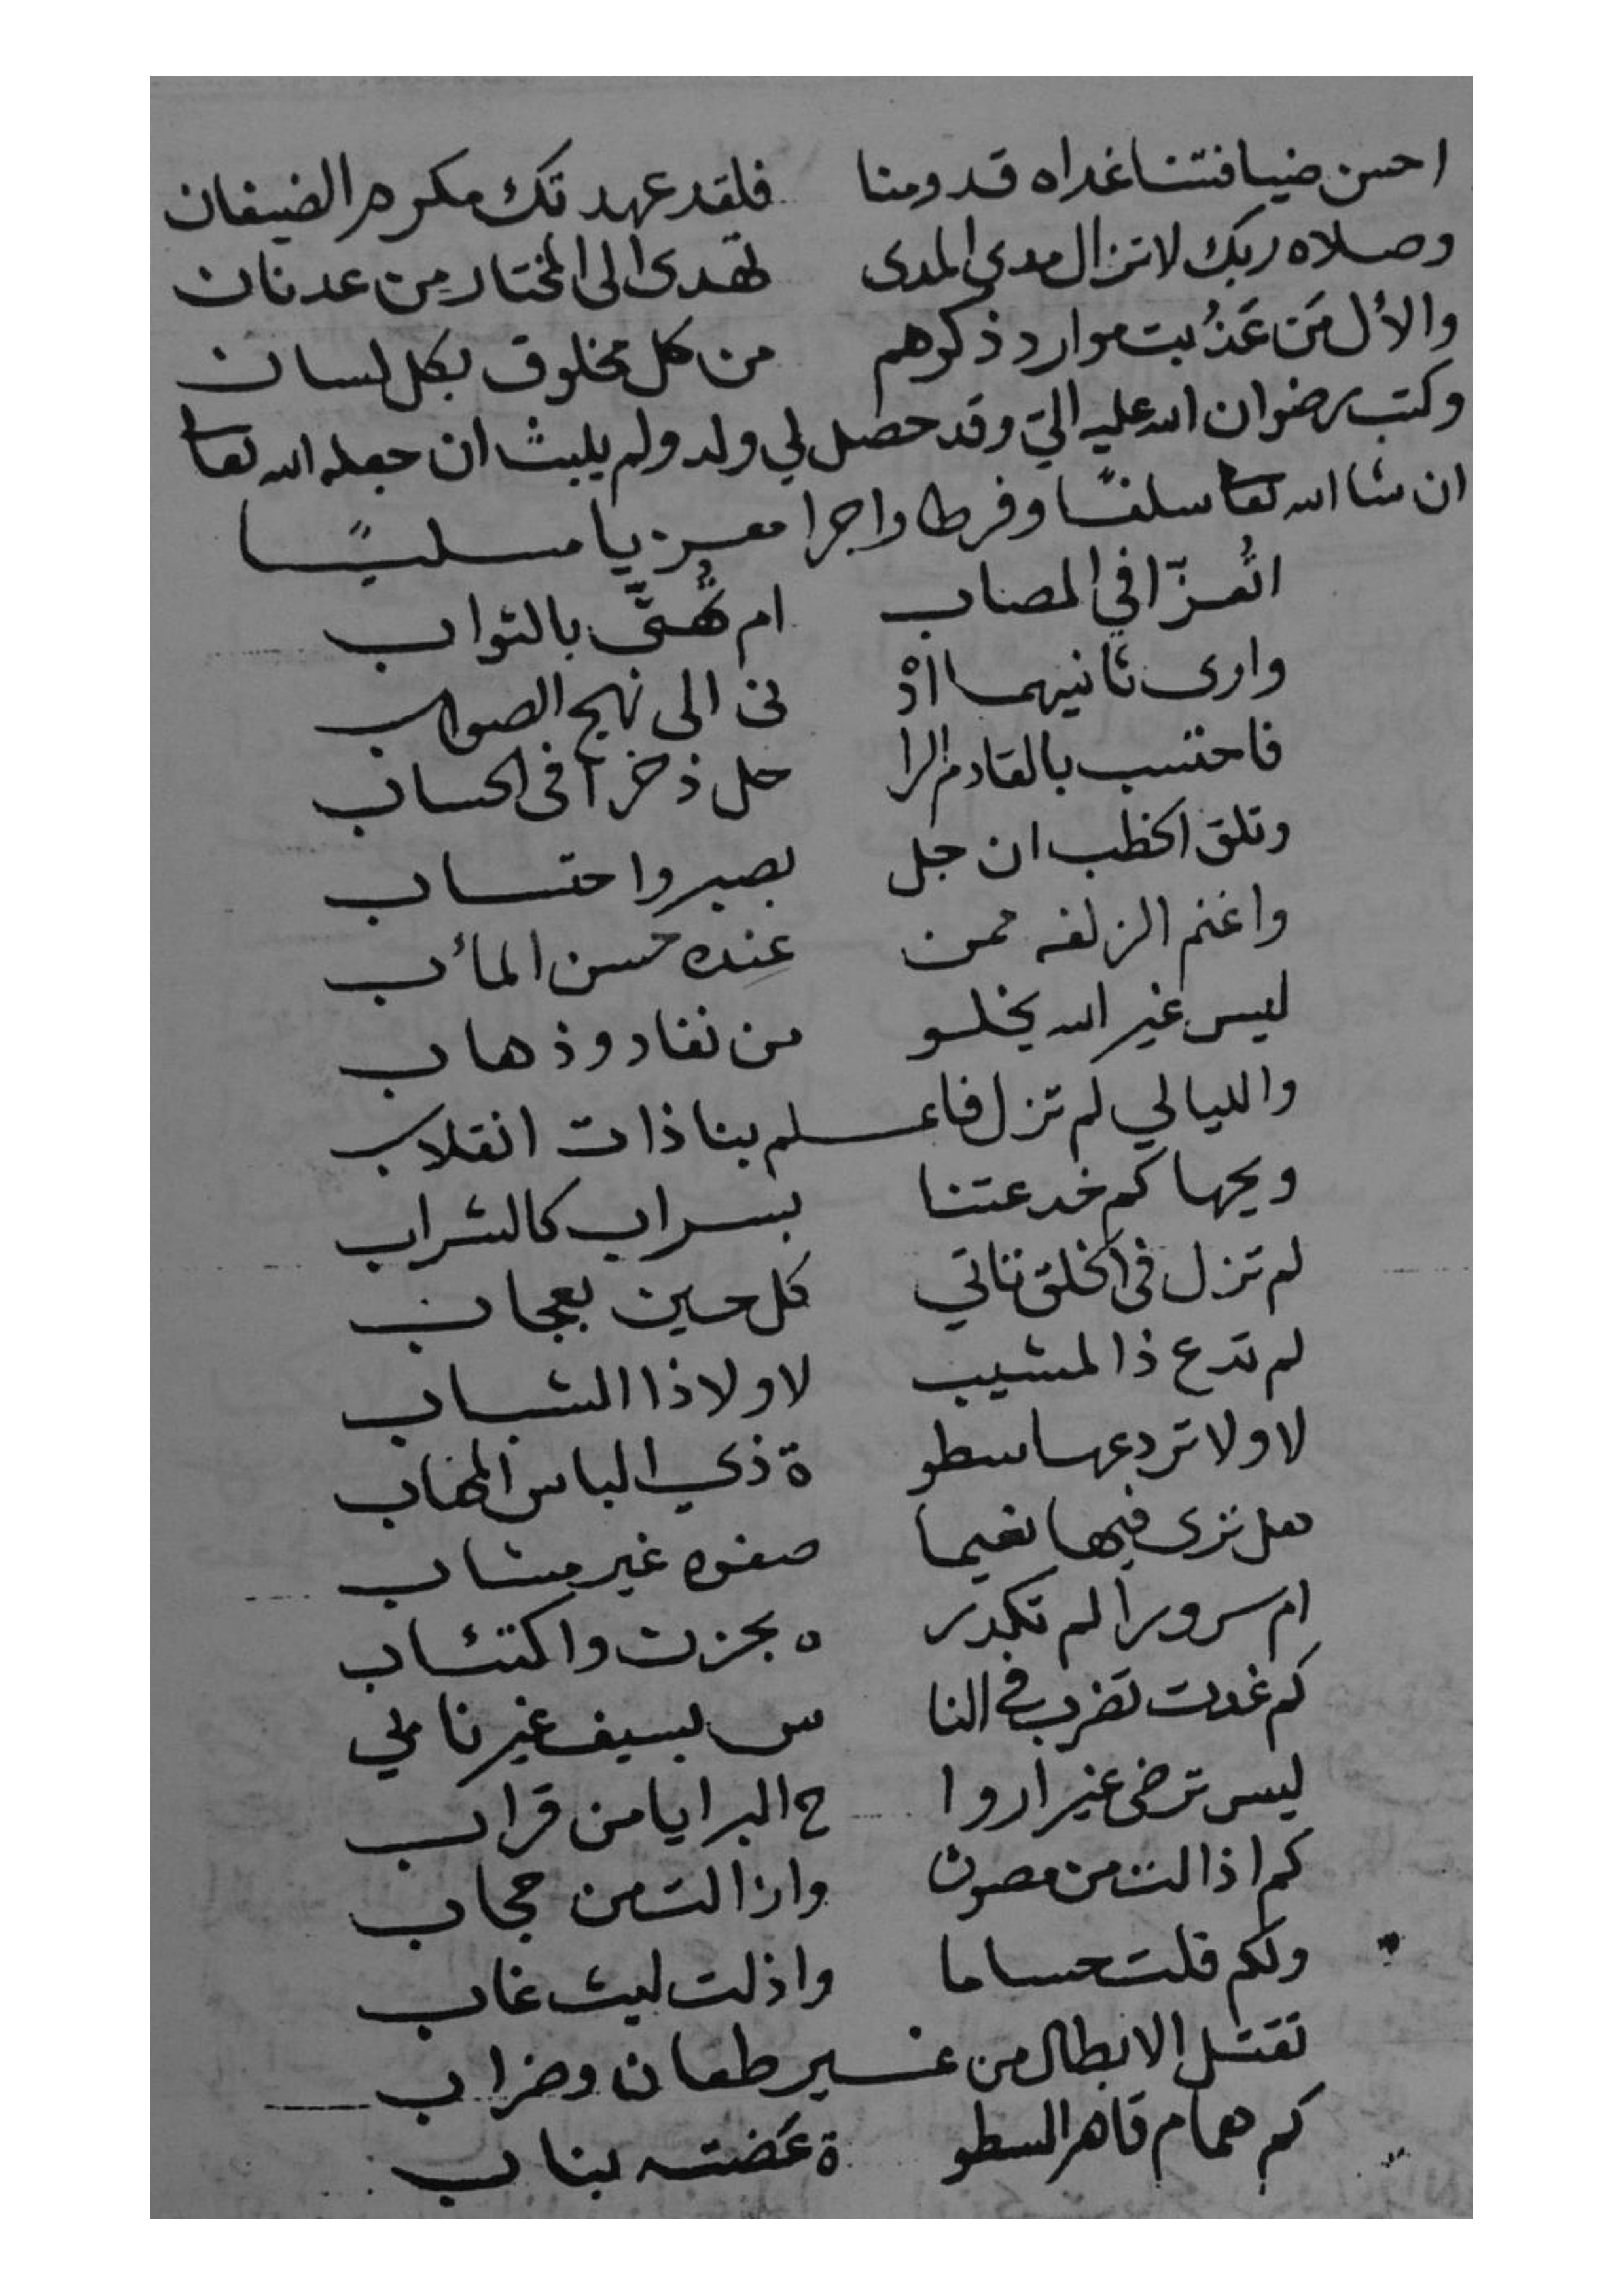 احسن ضيافتنا غداه قدومنا فلقد عهدتك مكرم الضيفان
وصلاه ربك لا تزال مدى المدى تهدى الى المختار من عدنان
والأل مَن عَذُبت موارد ذكرهم من كل مخلوق بكل لسان
وكتب رضوان الله عليه اليّ وقد حصل لي ولد ولم يلبث ان جعله الله تعا
ان شا الله تعا سلفًا وفرطا واجرا معزيا مسليًا
اتُعزّا في المصاب ام تُهنَّى بالثواب
وارى ثانيهما اَدْ نى الى نهج الصواب
فاحتسب بالقادم الرا حل ذخراً فى الحساب
وتلق الخطب ان جل بصبر واحتساب
واغنم الزلفه ممن عنده حسن المأب
ليس غير الله يخلو من نفاد وذهاب
والليالي لم تزل فاعلم بنا ذات انقلاب
ويحها كم خدعتنا بسراب كالشراب
لم تزل فى الخلق تاتي كل حين بعجاب
لم تدع ذا المشيب لا ولا ذا الشباب
لا ولا تردعها سطو ة ذي الباس المهاب
هل ترى فيها نعيما صفوه غير مشاب
ام سرورا لم تكدر ه بحزن واكتئاب
كم غدت تضرب في النا س بسيف غير نابي
ليس ترضى غير اروا ح البرايا من قراب
كم اذالت من مصون وازالت من حجاب
ولكم فلت حساما واذلت ليث غاب
تقتل الابطال من غير طعان وضراب
كم همام قاهر السطو ة عَضته بناب